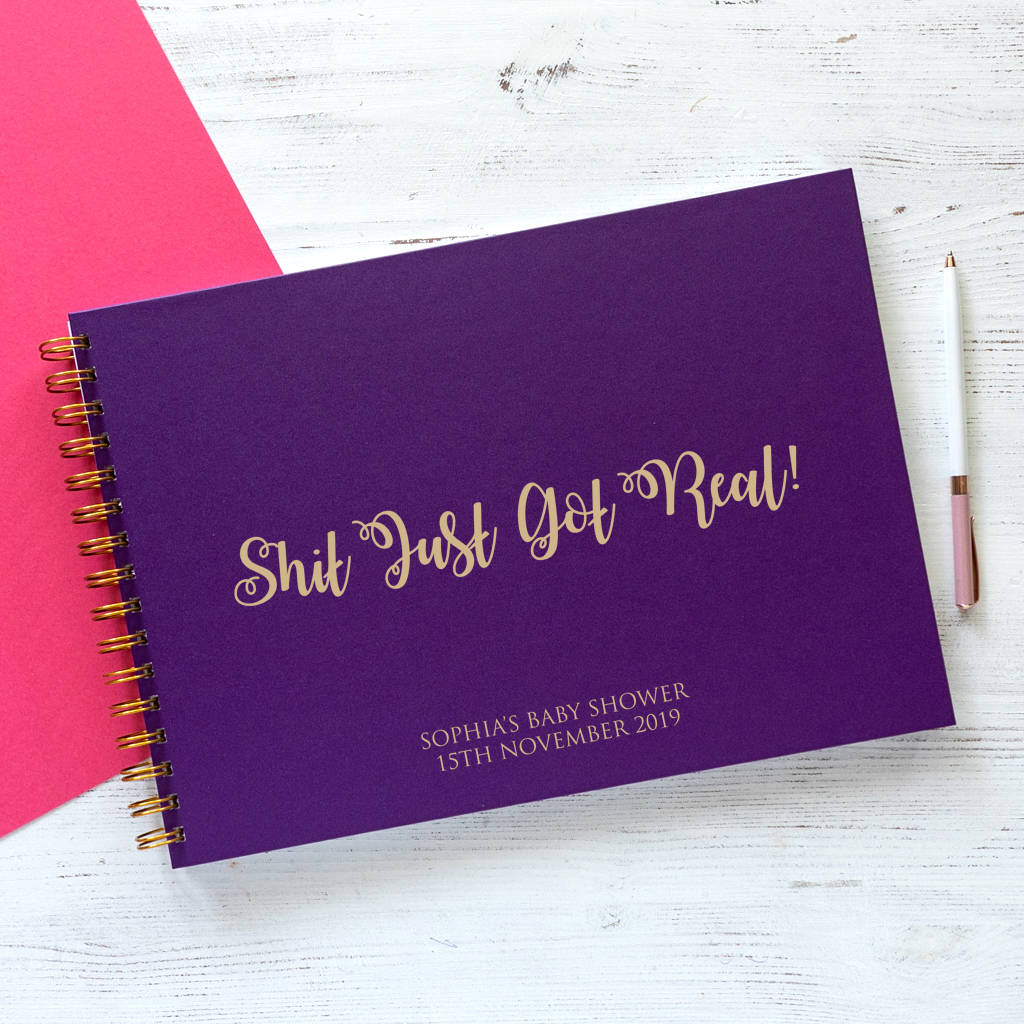 Shit Just Got Real!
SOPHIA'S BABY SHOWER
15TH NOVEMBER 2019